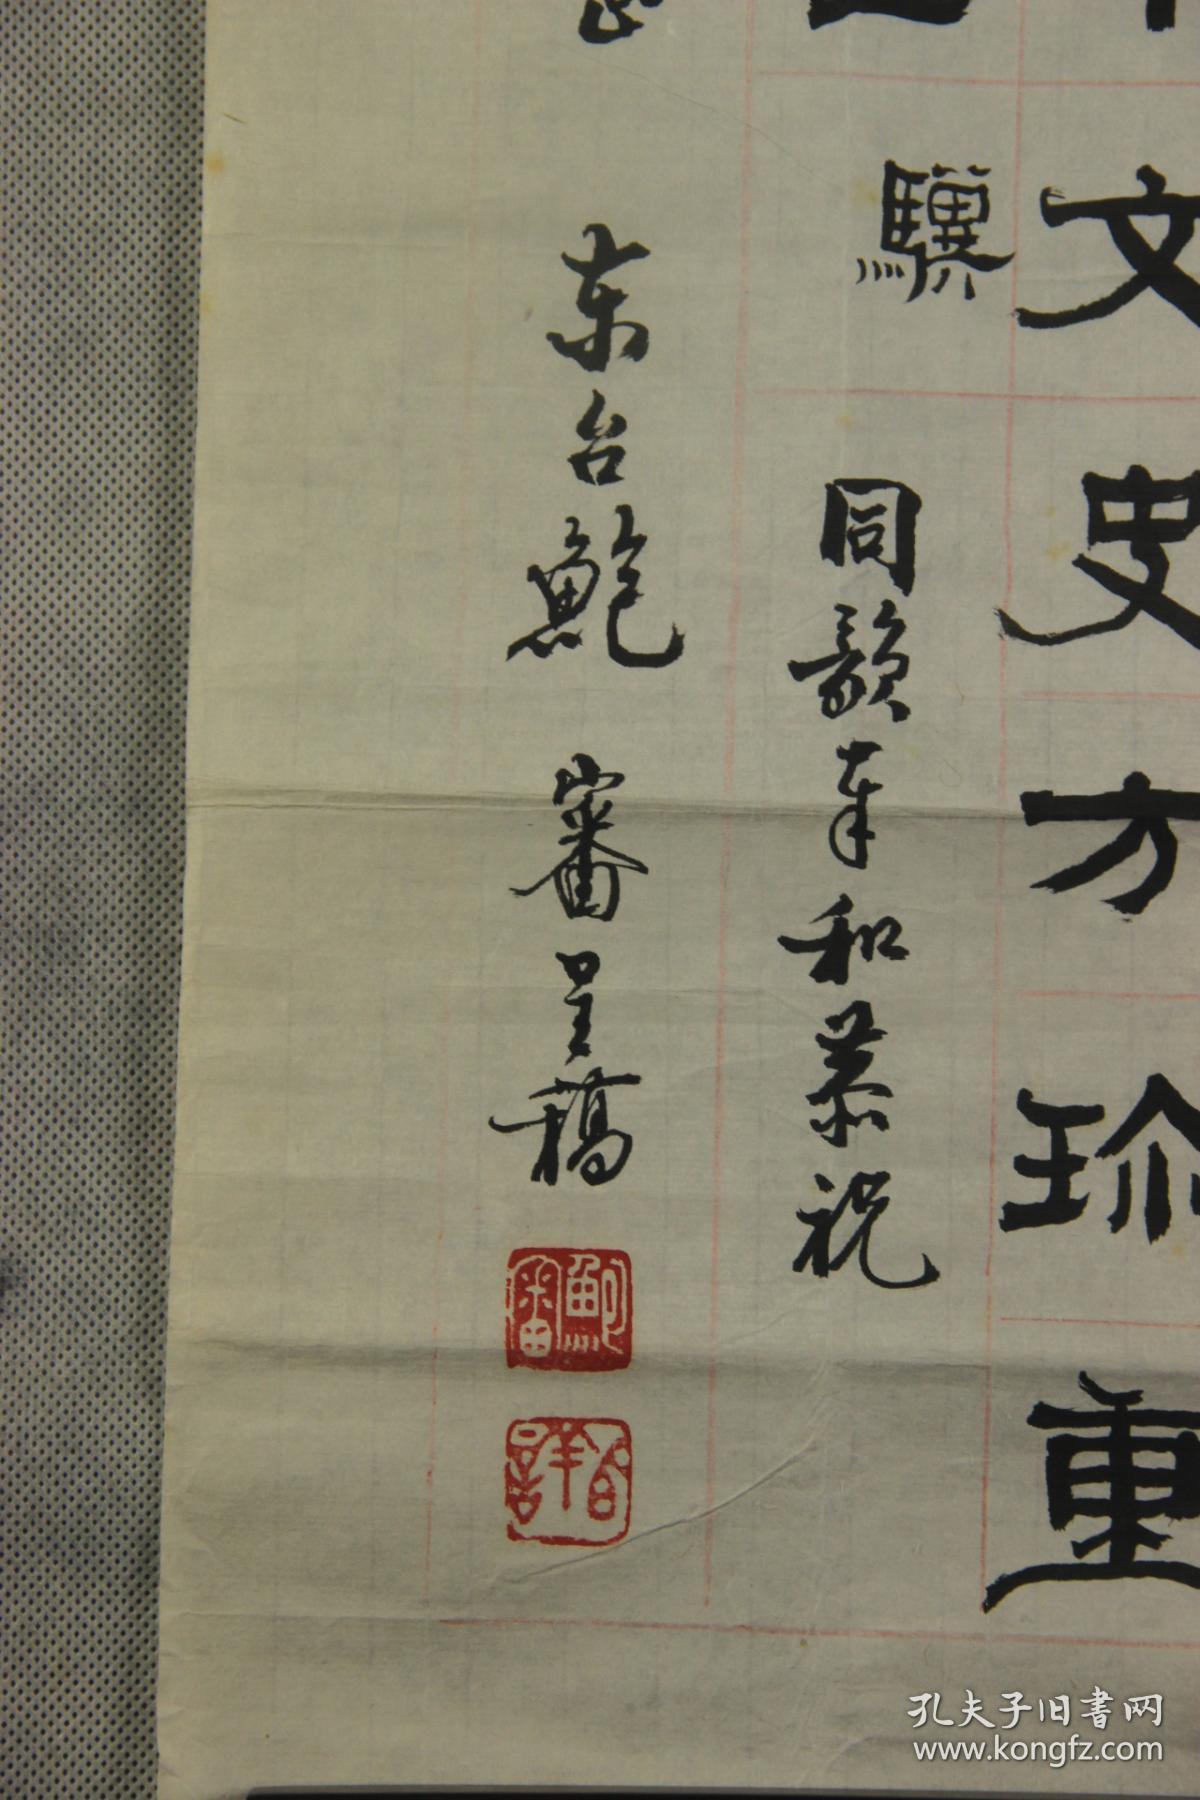 文史方珍重
驥
同韻奉和恭祝
东台鲍審呈稿
鮑審
孔夫子旧书网
www.kongfz.com